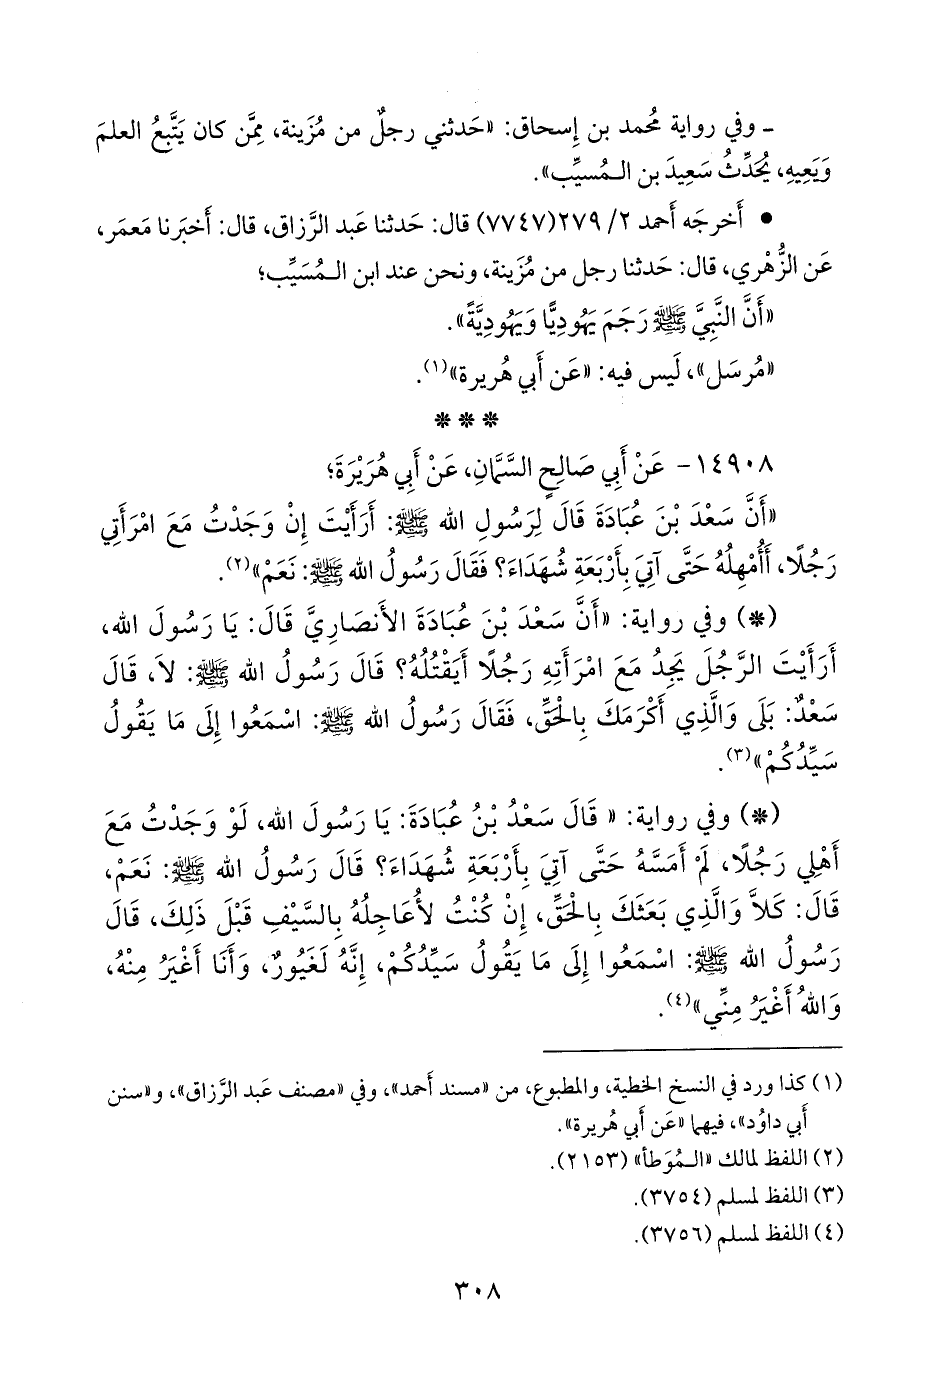 ـ وفي رواية مُحمد بن إِسحاق: «حَدثني رجلٌ من مُزَينة، مِمَّن كان يَتَّبعُ العلمَ
وَيَعِيهِ، يُحَدِّثُ سَعِيدَ بن الـمُسيِّب».
• أَخرجَه أَحمد ٢/ ٢٧٩(٧٧٤٧) قال: حَدثنا عَبد الرَّزاق، قال: أَخبَرنا مَعمَر،
عَن الزُّهْري، قال: حَدثنا رجل من مُزَينة، ونحن عند ابن الـمُسَيِّب؛
«أَنَّ النَّبِيَّ ﷺ رَجَمَ يَهُودِيًّا وَيَهُودِيَّةً».
«مُرسَل»، لَيس فيه: «عَن أَبي هُريرة»(١).
* * *
١٤٩٠٨- عَنْ أَبِي صَالِحٍ السَّمَّانِ، عَنْ أَبِي هُرَيْرَةَ؛
«أَنَّ سَعْدَ بْنَ عُبَادَةَ قَالَ لِرَسُولِ الله ﷺ: أَرَأَيْتَ إِنْ وَجَدْتُ مَعَ امْرَأَتِي
رَجُلًا، أَأُمْهِلُهُ حَتَّى آتِيَ بِأَرْبَعَةِ شُهَدَاءَ؟ فَقَالَ رَسُولُ الله ﷺ: نَعَمْ»(٢).
(*) وفي رواية: «أَنَّ سَعْدَ بْنَ عُبَادَةَ الأَنصَارِيَّ قَالَ: يَا رَسُولَ الله،
أَرَأَيْتَ الرَّجُلَ يَجِدُ مَعَ امْرَأَتِهِ رَجُلًا أَيَقْتُلُهُ؟ قَالَ رَسُولُ الله ﷺ: لاَ، قَالَ
سَعْدٌ: بَلَى وَالَّذِي أَكْرَمَكَ بِالْحَقِّ، فَقَالَ رَسُولُ الله ﷺ: اسْمَعُوا إِلَى مَا يَقُولُ
سَيِّدُكُمْ»(٣).
(*) وفي رواية: « قَالَ سَعْدُ بْنُ عُبَادَةَ: يَا رَسُولَ الله، لَوْ وَجَدْتُ مَعَ
أَهْلِي رَجُلًا، لَمْ أَمَسَّهُ حَتَّى آتِيَ بِأَرْبَعَةِ شُهَدَاءَ؟ قَالَ رَسُولُ الله ﷺ: نَعَمْ،
قَالَ: كَلاَّ وَالَّذِي بَعَثَكَ بِالْحَقِّ، إِنْ كُنْتُ لأُعَاجِلُهُ بِالسَّيْفِ قَبْلَ ذَلِكَ، قَالَ
رَسُولُ الله ﷺ: اسْمَعُوا إِلَى مَا يَقُولُ سَيِّدُكُمْ، إِنَّهُ لَغَيُورٌ، وَأَنَا أَغْيَرُ مِنْهُ،
وَاللهُ أَغْيَرُ مِنِّي»(٤).
(١) كذا ورد في النسخ الخطية، والمطبوع، من «مسند أَحمد»، وفي «مصنف عَبد الرَّزاق»، و«سنن
أَبي داوُد»، فيهما «عَن أَبي هُريرة».
(٢) اللفظ لمالك «الـمُوَطأ» (٢١٥٣).
(٣) اللفظ لمسلم (٣٧٥٤).
(٤) اللفظ لمسلم (٣٧٥٦).
٣٠٨